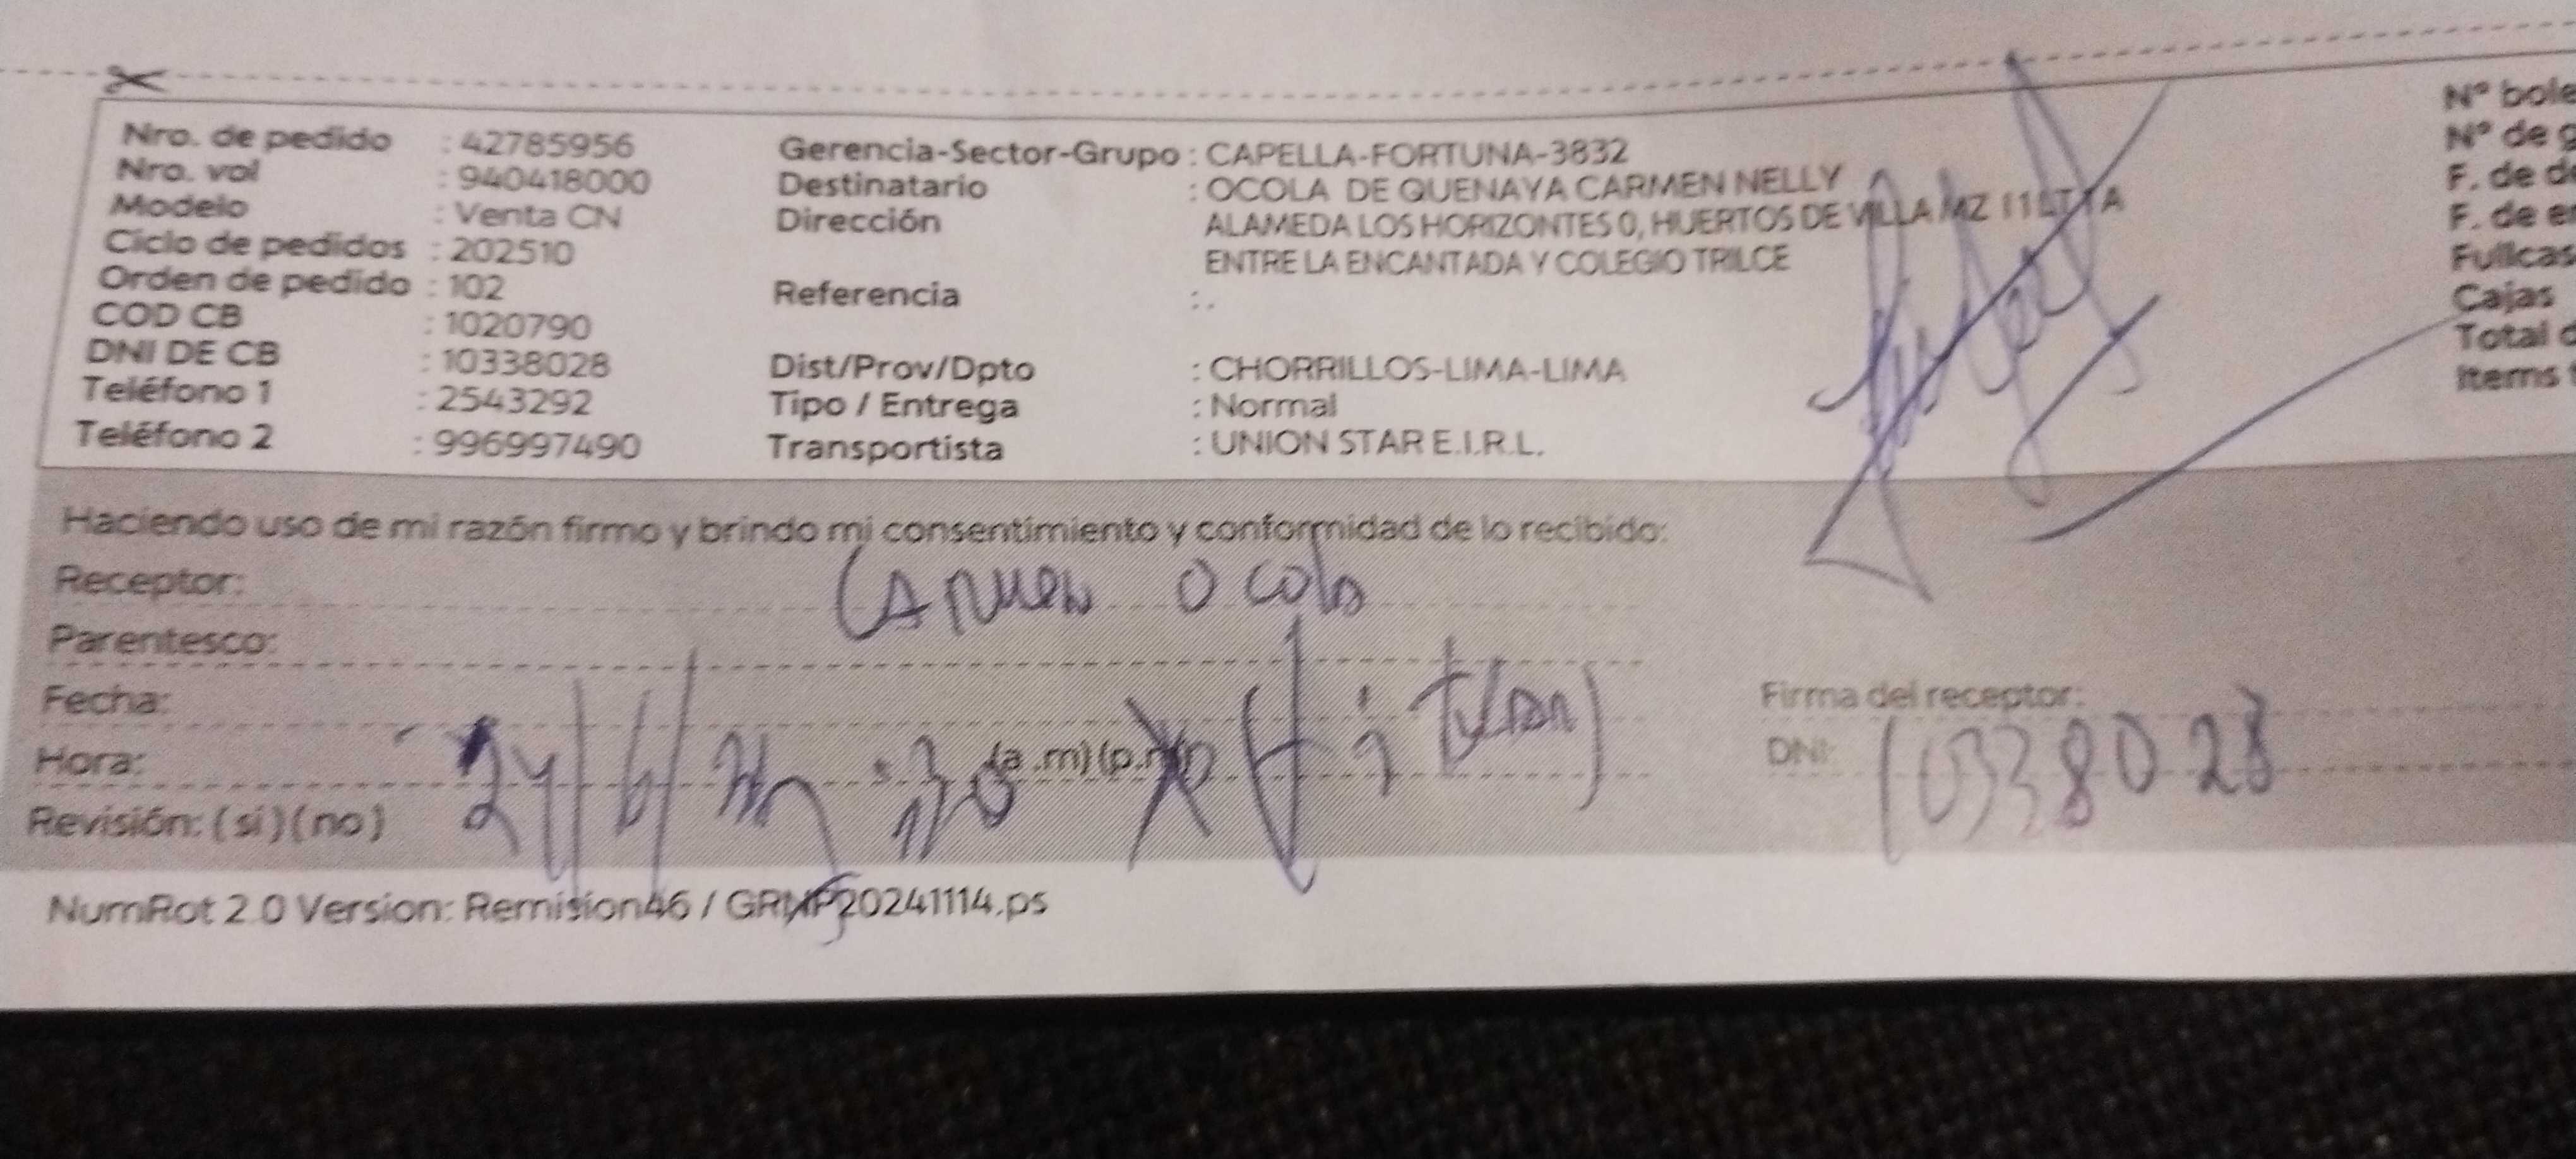 Nro. de pedido : 42785956
Nro. vol : 940418000
Modelo : Venta CN
Ciclo de pedidos : 202510
Orden de pedido : 102
COD CB : 1020790
DNI DE CB : 10338028
Teléfono 1 : 2543292
Teléfono 2 : 996997490
Gerencia-Sector-Grupo : CAPELLA-FORTUNA-3832
Destinatario : OCOLA DE QUENAYA CARMEN NELLY
Dirección ALAMEDA LOS HORIZONTES 0, HUERTOS DE VILLA MZ I1 LT 1A
ENTRE LA ENCANTADA Y COLEGIO TRILCE
Referencia : .
Dist/Prov/Dpto : CHORRILLOS-LIMA-LIMA
Tipo / Entrega : Normal
Transportista : UNION STAR E.I.R.L.
Nº
Nº de
F. de
F. de
Cajas
Total
Items
Haciendo uso de mi razón firmo y brindo mi consentimiento y conformidad de lo recibido:
Receptor: Carmen Ocola
Parentesco:
Fecha: 24/6/
Hora: (a .m)(p.m)
Revisión: (si)(no)
Firma del receptor:
DNI: 10338028
NumRot 2.0 Version: Remision46 / GRNP20241114.ps